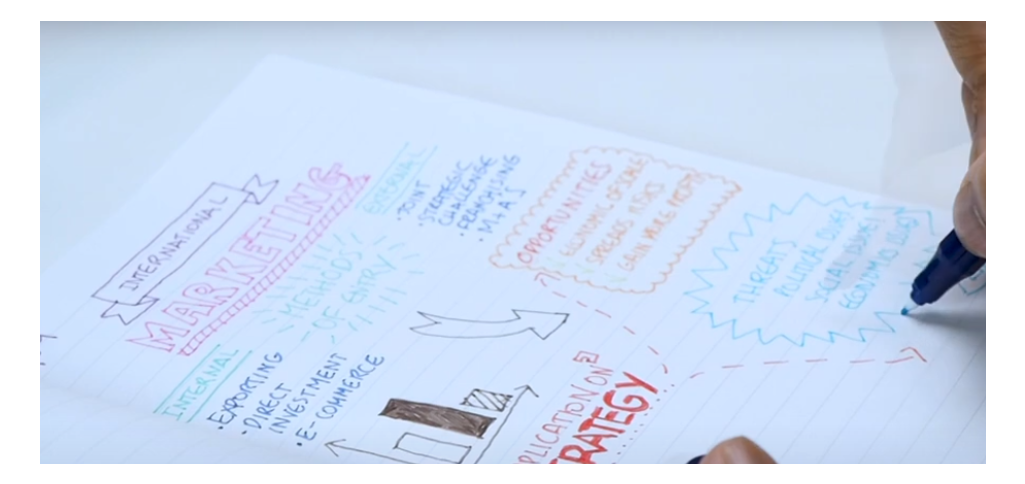 INTERNATIONAL
MARKETING
METHODS
OF ENTRY
EXTERNAL
• JOINT
• STRATEGIC
CHALLENGE
• FRANCHISING
• M+A'S
INTERNAL
• EXPORTING
• DIRECT
INVESTMENT
• E-COMMERCE
OPPORTUNITIES
ECONOMIC OF SCALE
SPREADS RISKS
GAIN MORE PROFITS
THREATS
POLITICAL ISSUES
SOCIAL ISSUES
ECONOMIC ISSUES
PLICATION ON
TRATEGY